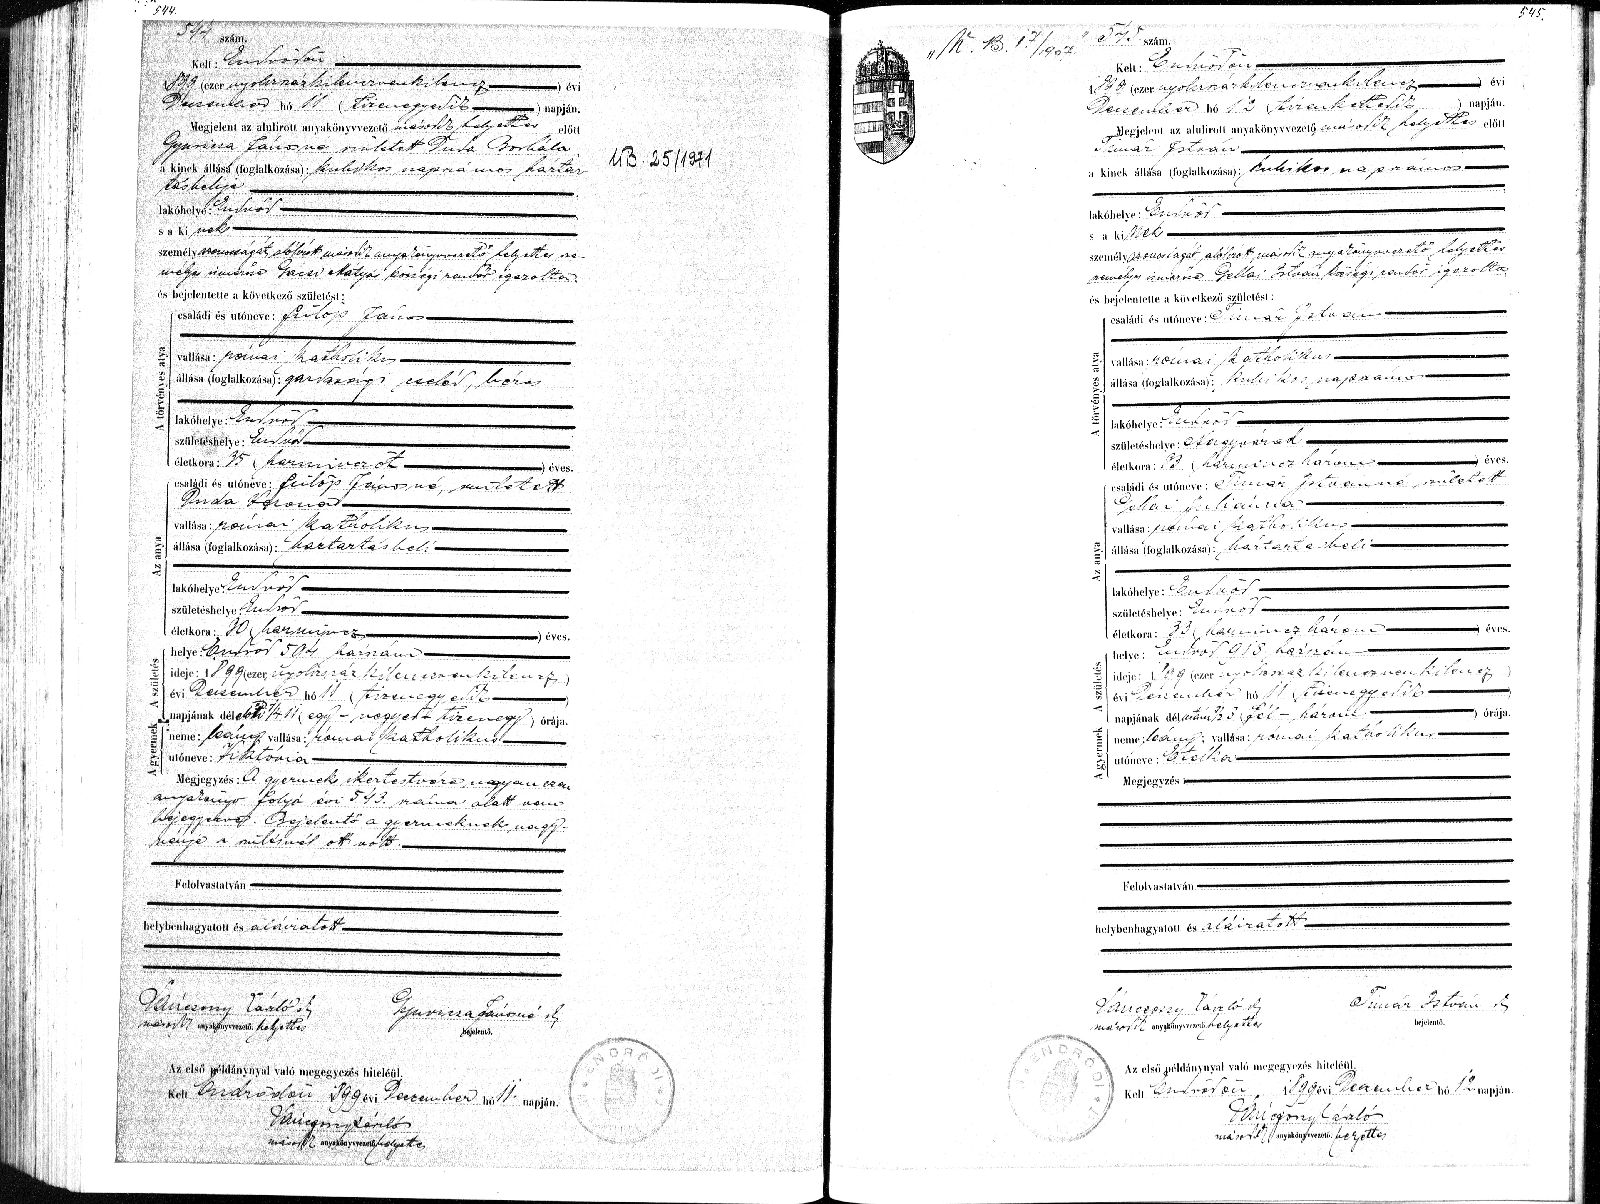 544.
544 szám.
Kelt: Endrődön
1899 (ezer nyolcszázkilencvenkilencz) évi
Deczember hó 11 (tizenegyedik) napján.
Megjelent az alulirott anyakönyvvezető második helyettes előtt
Gyuricza Jánosné született Duda Borbála
a kinek állása (foglalkozása): kubikos napszámos háztar
tásbelije
lakóhelye: Endrőd
s a ki nek
személyazonosságát alólirott második anyakönyvvezető helyettes sze-
mélye ismerőse Mátyás községi rendőr igazolta
és bejelentette a következő születést:
A törvényes atya
családi és utóneve: Fülöp János
vallása: római katholikus
állása (foglalkozása): gazdasági cseléd, béres
lakóhelye: Endrőd
születéshelye: Endrőd
életkora: 35 (harminczöt) éves.
Az anya
családi és utóneve: Fülöp Jánosné, született
Duda Ilona
vallása: római katholikus
állása (foglalkozása): háztartásbeli
lakóhelye: Endrőd
születéshelye: Endrőd
életkora: 30 (harmincz) éves.
A születés
helye: Endrőd 504 házszám
ideje: 1899 (ezer nyolcszázkilenczvenkilencz)
évi Deczember hó 11 (tizenegyedik)
napjának délelőtti 1/4 11 (egy-negyed-tizenegy) órája.
A gyermek
neme: leány; vallása: római katholikus
utóneve: Viktória
Megjegyzés: A gyermek ikertestvére ugyanezen
anyakönyv folyó évi 543. száma alatt van
bejegyezve. Bejelentő a gyermeknek nagy-
nénje a szülésnél ott volt.
Felolvastatván
helybenhagyatott és aláiratott
Váncsony László sk
második anyakönyvvezető helyettes
Gyuricza Jánosné sk
bejelentő.
Az első példánynyal való megegyezés hiteléül.
Kelt Endrődön 1899 évi Deczember hó 11. napján.
Váncsony László
második anyakönyvvezető helyettes
ENDRŐDI
UB. 25/1971
545.
"K. B. 17/1907"
545 szám.
Kelt: Endrődön
1899 (ezer nyolcszázkilenczvenkilencz) évi
Deczember hó 12 (tizenkettedik) napján.
Megjelent az alulirott anyakönyvvezető második helyettes előtt
Timár István
a kinek állása (foglalkozása): kubikos napszámos
lakóhelye: Endrőd
s a ki nek
személyazonosságát alólirott második anyakönyvvezető helyettes
személye ismerőse Gellai István községi rendőr igazolta
és bejelentette a következő születést:
A törvényes atya
családi és utóneve: Timár István
vallása: római katholikus
állása (foglalkozása): kubikos napszámos
lakóhelye: Endrőd
születéshelye: Nagyvárad
életkora: 33 (harmincz három) éves.
Az anya
családi és utóneve: Timár Istvánné, született
Gellai Juliánna
vallása: római katholikus
állása (foglalkozása): háztartásbeli
lakóhelye: Endrőd
születéshelye: Endrőd
életkora: 33 (harmincz három) éves.
A születés
helye: Endrőd 918 házszám
ideje: 1899 (ezer nyolcszázkilenczvenkilencz)
évi Deczember hó 11 (tizenegyedik)
napjának délutáni 1/2 3 (fél-három) órája.
A gyermek
neme: leány; vallása: római katholikus
utóneve: Etelka
Megjegyzés:
Felolvastatván
helybenhagyatott és aláiratott
Váncsony László sk
második anyakönyvvezető helyettes
Timár István sk
bejelentő.
Az első példánynyal való megegyezés hiteléül.
Kelt Endrődön 1899 évi Deczember hó 12 napján.
Váncsony László
második anyakönyvvezető helyettes
ENDRŐDI